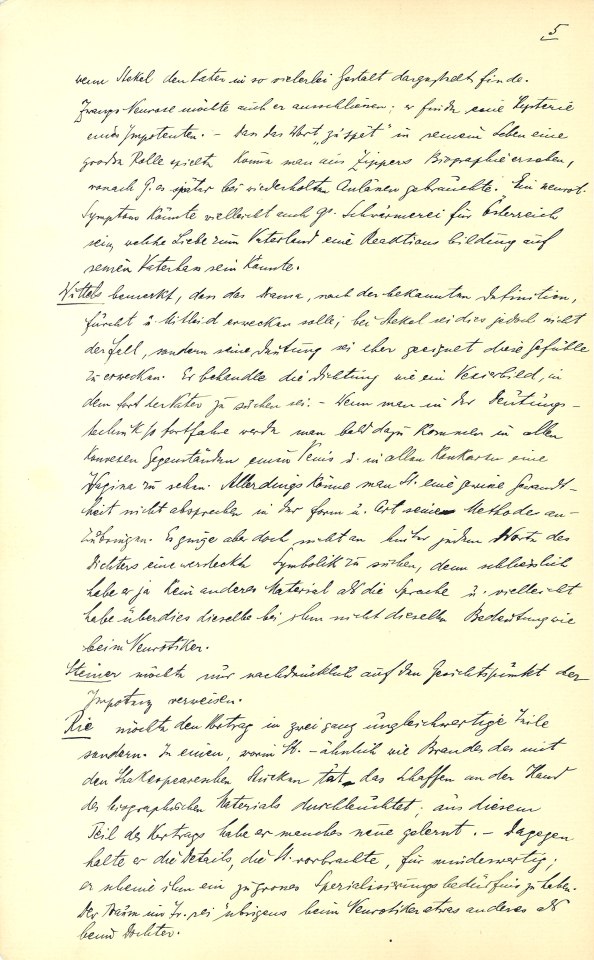 5
wenn Stekel den Vater in so vielerlei Gestalt dargestellt finde.
Zwangs-Neurose möchte auch er ausschliessen; er finde eine Hysterie
eines Impotenten. – Dass das Wort „zu spät" in seinem Leben eine
grosse Rolle spielte könne man aus Zippers Biographie ersehen,
wonach G. es später bei wiederholten Anlässen gebrauchte. Ein neurot.
Symptom könnte vielleicht auch Gr. Schwärmerei für Österreich
sein, welche Liebe zum Vaterland eine Reaktionsbildung auf
seinen Vaterhass sein könnte.
Wittels bemerkt, dass das Drama, nach der bekannten Definition,
Furcht u. Mitleid erwecken solle; bei Stekel sei dies jedoch nicht
der Fall, sondern seine Deutung sei eher geeignet diese Gefühle
zu erwecken. Er behandle die Dichtung wie ein Vexierbild, in
dem fort der Vater zu suchen sei. – Wenn man in der Deutungs-
technik so fortfahre werde man bald dazu kommen in allen
konvexen Gegenständen einen Penis u. in allen konkaven eine
Vagina zu sehen. Allerdings könne man St. eine gewisse Gewandt-
heit nicht absprechen in der Form u. Art seine Methoden an-
zubringen. Es ginge aber doch nicht an hinter jedem Worte des
Dichters eine versteckte Symbolik zu suchen, denn schliesslich
habe er ja kein anderes Material als die Sprache u. vielleicht
habe überdies dieselbe bei ihm nicht dieselbe Bedeutung wie
beim Neurotiker.
Steiner möchte nur nachdrücklich auf den Gesichtspunkt der
Impotenz verweisen.
Rie möchte den Vortrag in zwei ganz ungleichwertige Teile
sondern. In einen, worin St. – ähnlich wie Brandes des mit
den Shakespeareschen Stücken tat – das Schaffen an der Hand
des biographischen Materials durchleuchtet; aus diesem
Teil des Vortrags habe er manches neue gelernt. – Dagegen
halte er die Details, die St. vorbrachte, für minderwertig;
er scheine ihm ein zu grosses Spezialisierungsbedürfnis zu haben.
Der Traum ins Fr. sei übrigens beim Neurotiker etwas anderes als
beim Dichter.